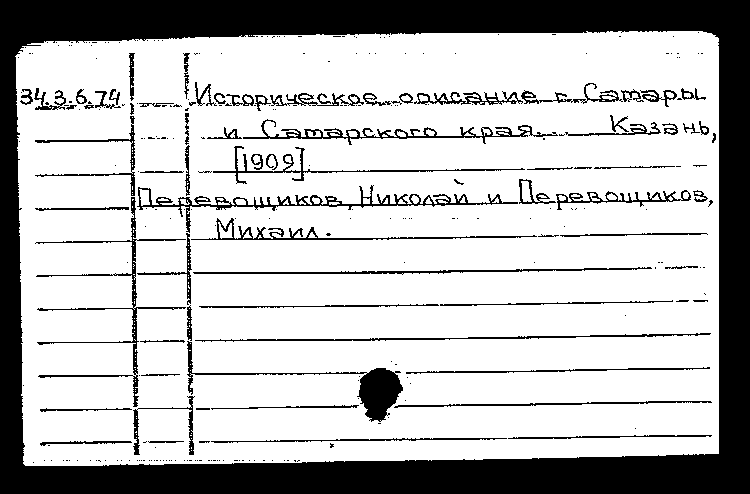 34.3.6.74 Историческое описание г. Самары
и Самарского края... Казань,
[1909].
Перевощиков, Николай и Перевощиков,
Михаил.